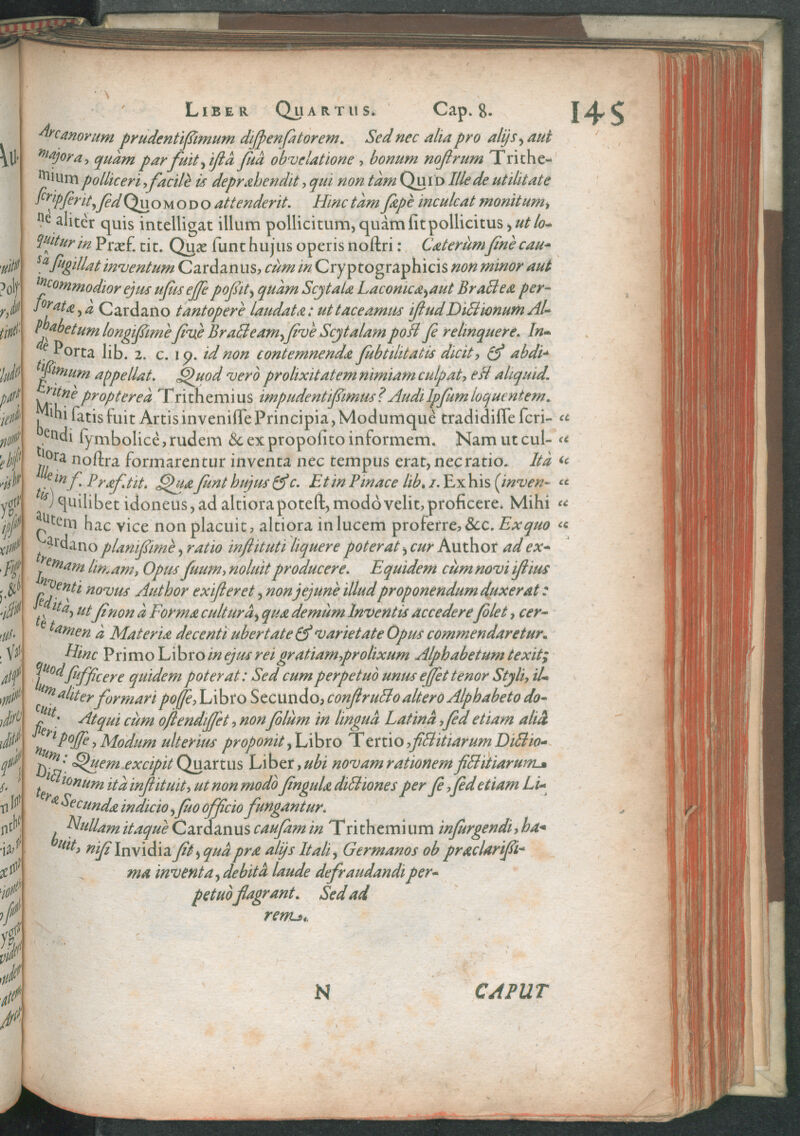 LIBER QUARTUS. Cap. 8. 145
Arcanorum prudentißimum dispensatorem. Sed nec alia pro alijs, aut
majora, quàm par fuit, istâ suâ obvelatione, bonum nostrum Trithe-
mium polliceri, facilè is depræhendit, qui non tàm QUID Ille de utilitate
scripserit, sed QUOMODO attenderit. Hinc tam sæpè inculcat monitum,
ne alitèr quis intelligat illum pollicitum, quàm sit pollicitus, ut lo-
quitur in Præf. tit. Quæ sunt hujus operis nostri: Cæterùm sinè cau-
sâ sugillat inventum Cardanus, cùm in Cryptographicis non minor aut
incommodior ejus usus esse possit, quàm Scytalæ Laconicæ, aut Bracteæ per-
foratæ, à Cardano tantoperè laudatæ: ut taceamus istud Dictionum Al-
phabetum longißimè sivè Bracteam, sivè Scytalam post se relinquere. In-
de Porta lib. 2. c. 19. id non contemnendæ subtilitatis dicit, & abdi-
tißimum appellat. Quod verò prolixitatem nimiam culpat, est aliquid.
Eritnè proptereà Trithemius impudentißimus? Audi Ipsum loquentem.
Mihi satis fuit Artis invenisse Principia, Modumquè tradidisse scri- “
bendi symbolicè, rudem & ex proposito informem. Nam ut cul- “
tiora nostra formarentur inventa nec tempus erat, nec ratio. Itâ “
Ille in f. Præf. tit. Quæ sunt hujus &c. Et in Pinace lib. 1. Ex his (inven- “
tis) quilibet idoneus, ad altiora potest, modò velit, proficere. Mihi “
autem hac vice non placuit, altiora in lucem proferre, &c. Ex quo “
Cardano planißimè, ratio instituti liquere poterat, cur Author ad ex-
tremam limam, Opus suum, noluit producere. Equidem cùm novi istius
Inventi novus Author existeret, non jejunè illud proponendum duxerat:
sed ità, ut si non à Formæ culturâ, quæ demùm Inventis accedere solet, cer-
tè tamen à Materiæ decenti ubertate & varietate Opus commendaretur.
Hinc Primo Libro in ejus rei gratiam, prolixum Alphabetum texit;
quod sufficere quidem poterat: Sed cum perpetuò unus esset tenor Styli, il-
lum aliter formari posse, Libro Secundo, constructo altero Alphabeto do-
cuit. Atqui cùm ostendisset, non solùm in linguâ Latinâ, sed etiam aliâ
fieri posse, Modum ulterius proponit, Libro Tertio, fictitiarum Dictio-
num: Quem excipit Quartus Liber, ubi novam rationem fictitiarum
Dictionum ità instituit, ut non modò singulæ dictiones per se, sed etiam Li-
teræ Secundæ indicio, suo officio fungantur.
Nullam itaquè Cardanus causam in Trithemium insurgendi, ha-
buit, nisi Invidia sit, quâ præ alijs Itali, Germanos ob præclarißi-
ma inventa, debitâ laude defraudandi per-
petuò flagrant. Sed ad
rem.
N CAPUT